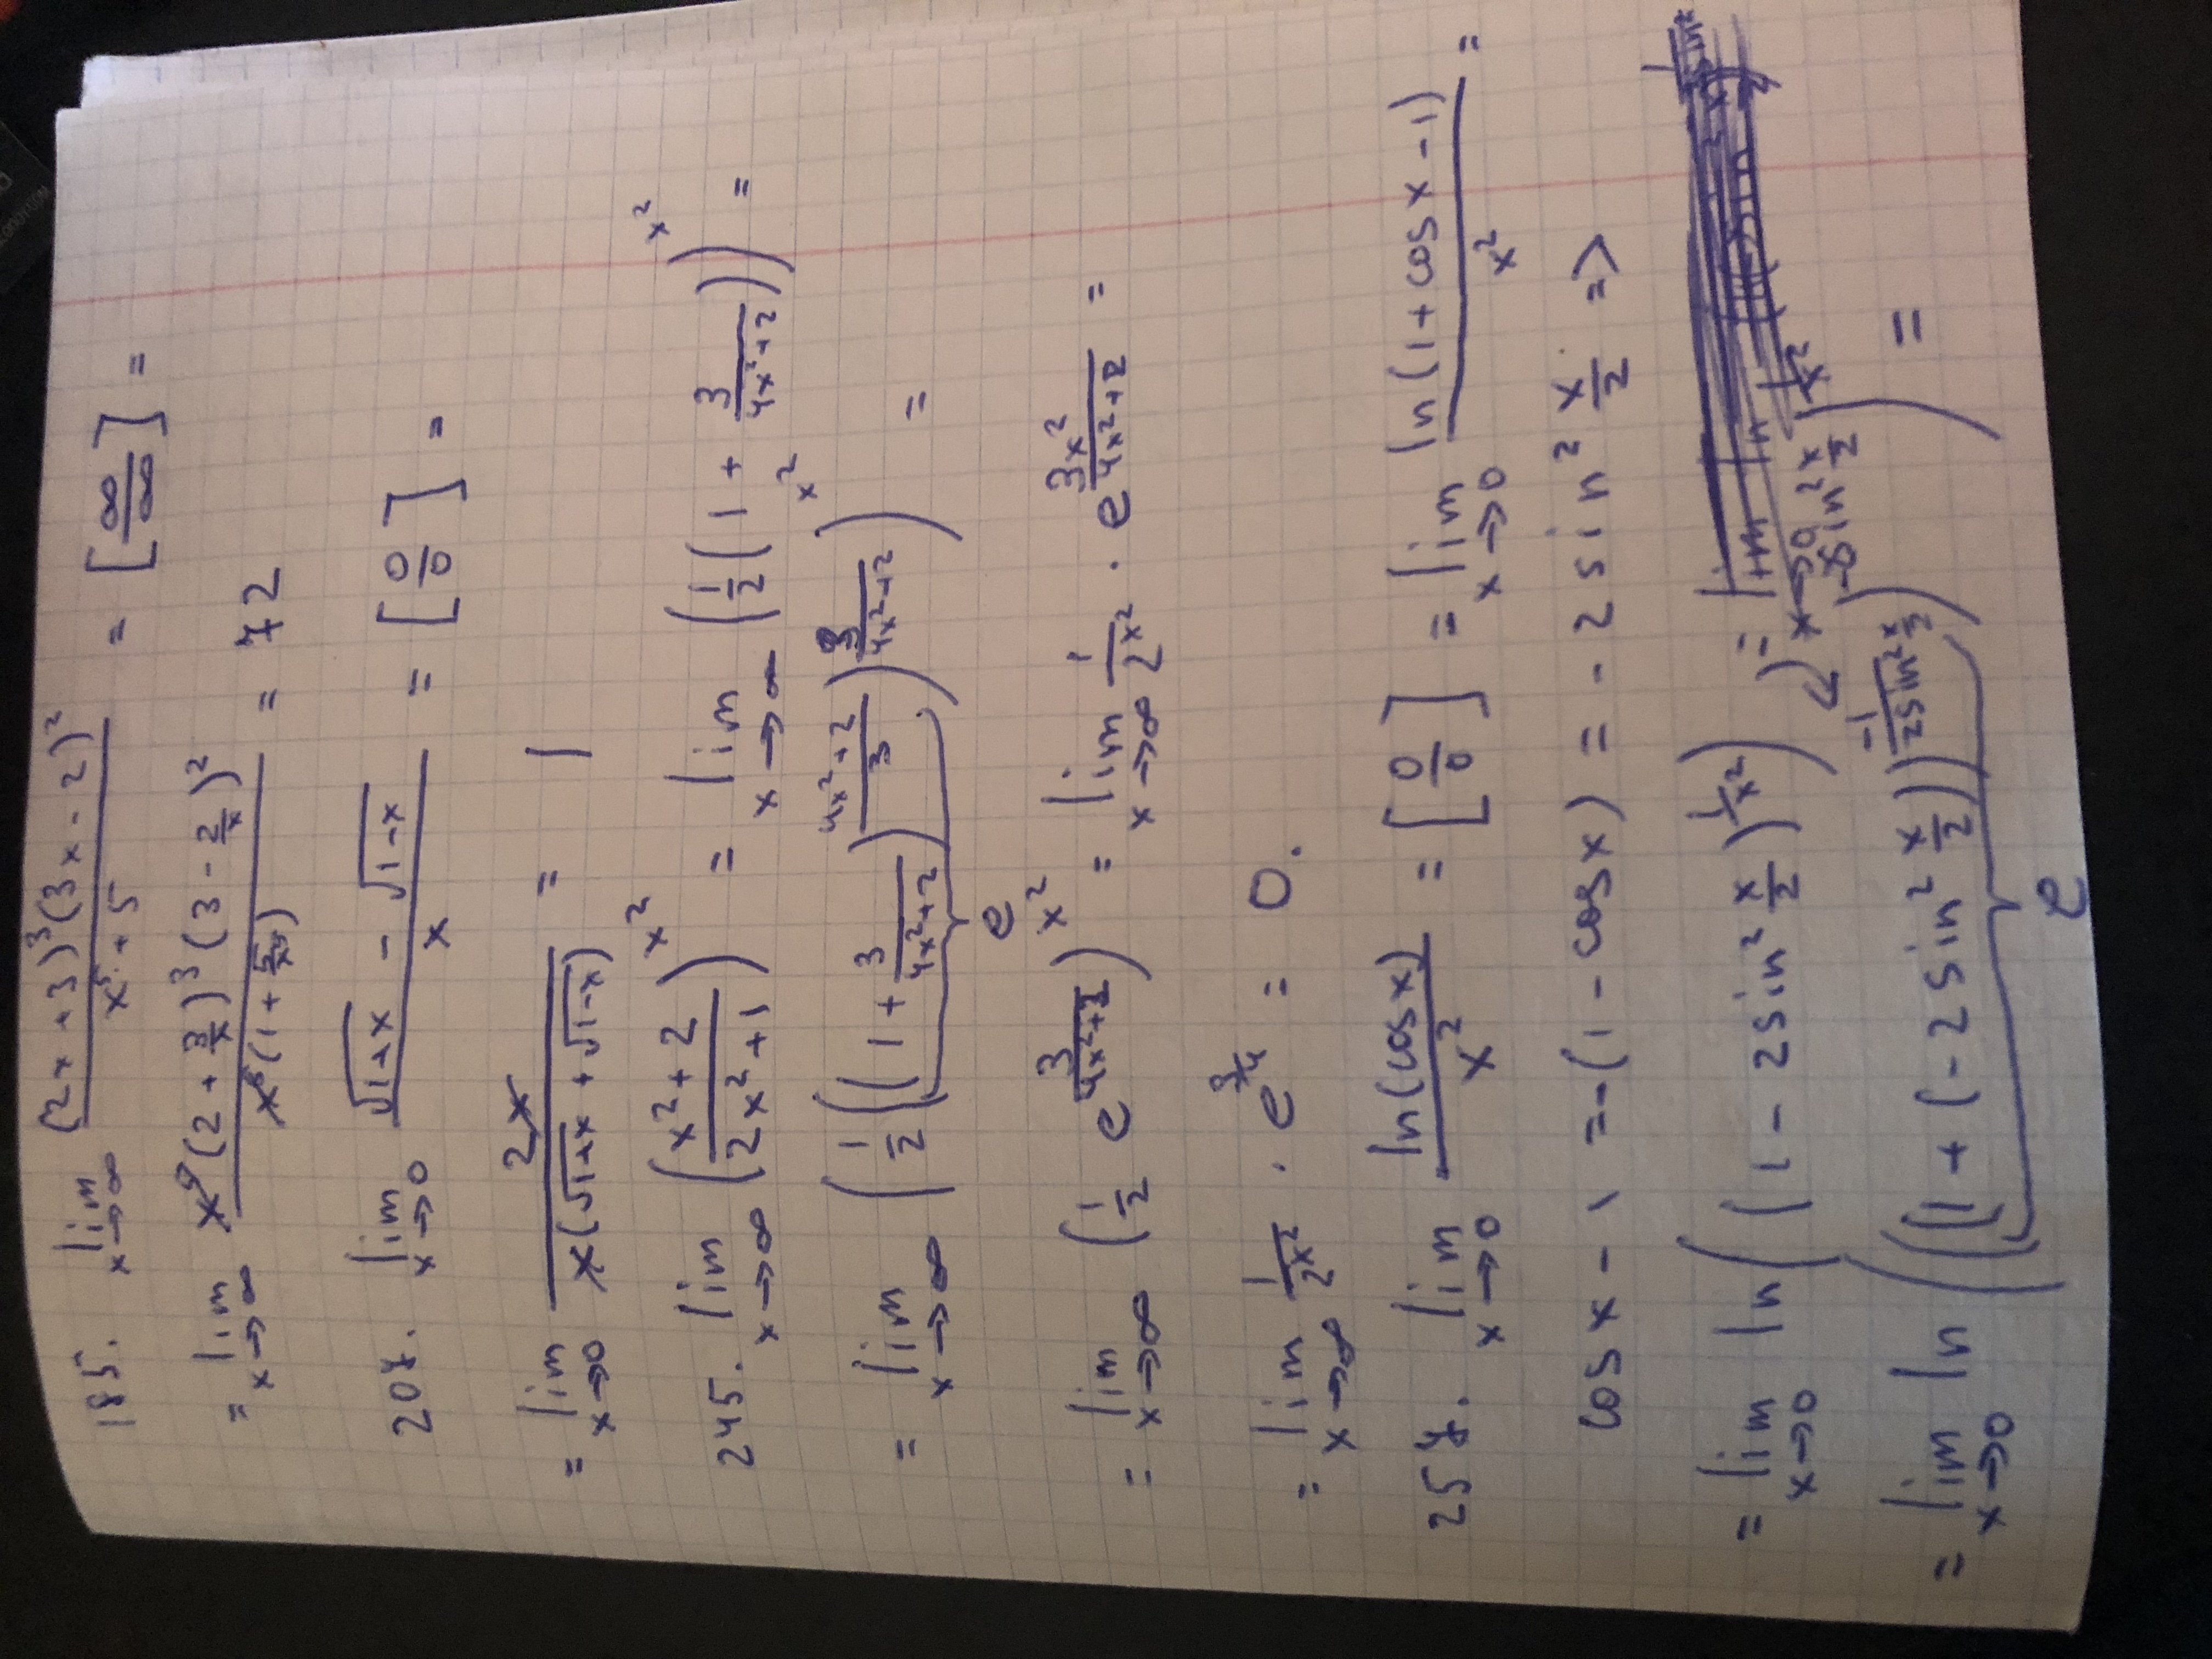 185. lim x→∞ (2x+3)³(3x-2)² / x⁵+5 = [∞/∞] =
= lim x→∞ x⁵(2+3/x)³(3-2/x)² / x⁵(1+5/x⁵) = 72
207. lim x→0 √1+x - √1-x / x = [0/0] =
= lim x→0 2x / x(√1+x + √1-x) = 1
245. lim x→∞ (x²+2 / 2x²+1)^x² = lim x→∞ (1/2 (1 + 3/4x²+2))^x² =
= lim x→∞ (1/2 ((1 + 3/4x²+2)^4x²+2/3)^3/4x²+2)^x² =
e
= lim x→∞ (1/2 e^3/4x²+2)^x² = lim x→∞ 1/2^x² · e^3x²/4x²+2 =
= lim x→∞ 1/2^x² · e^3/4 = 0.
257. lim x→0 ln(cosx)/x² = [0/0] = lim x→0 ln(1+cosx-1)/x² =
cosx-1 = -(1-cosx) = -2sin² x/2 =>
= lim x→0 ln((1-2sin² x/2)^1/x²) =
= lim x→0 ln(((1+(-2sin² x/2))^-1/2sin² x/2)^-2sin² x/2 · 1/x²) =
e